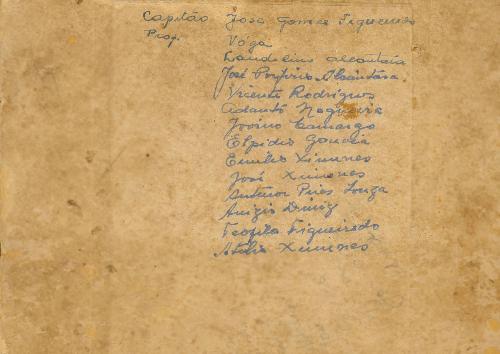 Capitão José Gomes Figueiredo
Prof. Vóga
Laudelino Alcantara
José Porfirio Alcantara.
Vicente Rodrigues
Adauto Nogueira
Jovino Camargo
Elpidio Gouveia
Emilio Ximenes
José Ximenes
Antenor Pires Souza
Anizio Diniz
Teofilo Figueiredo
Atilio Ximenes